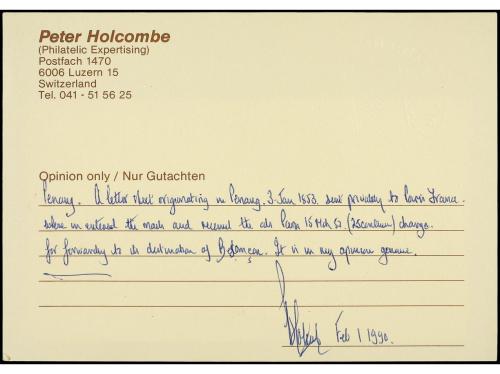 Peter Holcombe
(Philatelic Expertising)
Postfach 1470
6006 Luzern 15
Switzerland
Tel. 041 - 51 56 25
Opinion only / Nur Gutachten
Penang. A letter sheet originating in Penang. 3 Jan 1853. sent privately to Paris France.
where it entered the mails and received the cds Paris 15 Mch 53 (25 centimes) charge.
for forwarding to its destination of Besançon. It is in my opinion genuine.
Feb 1 1990.